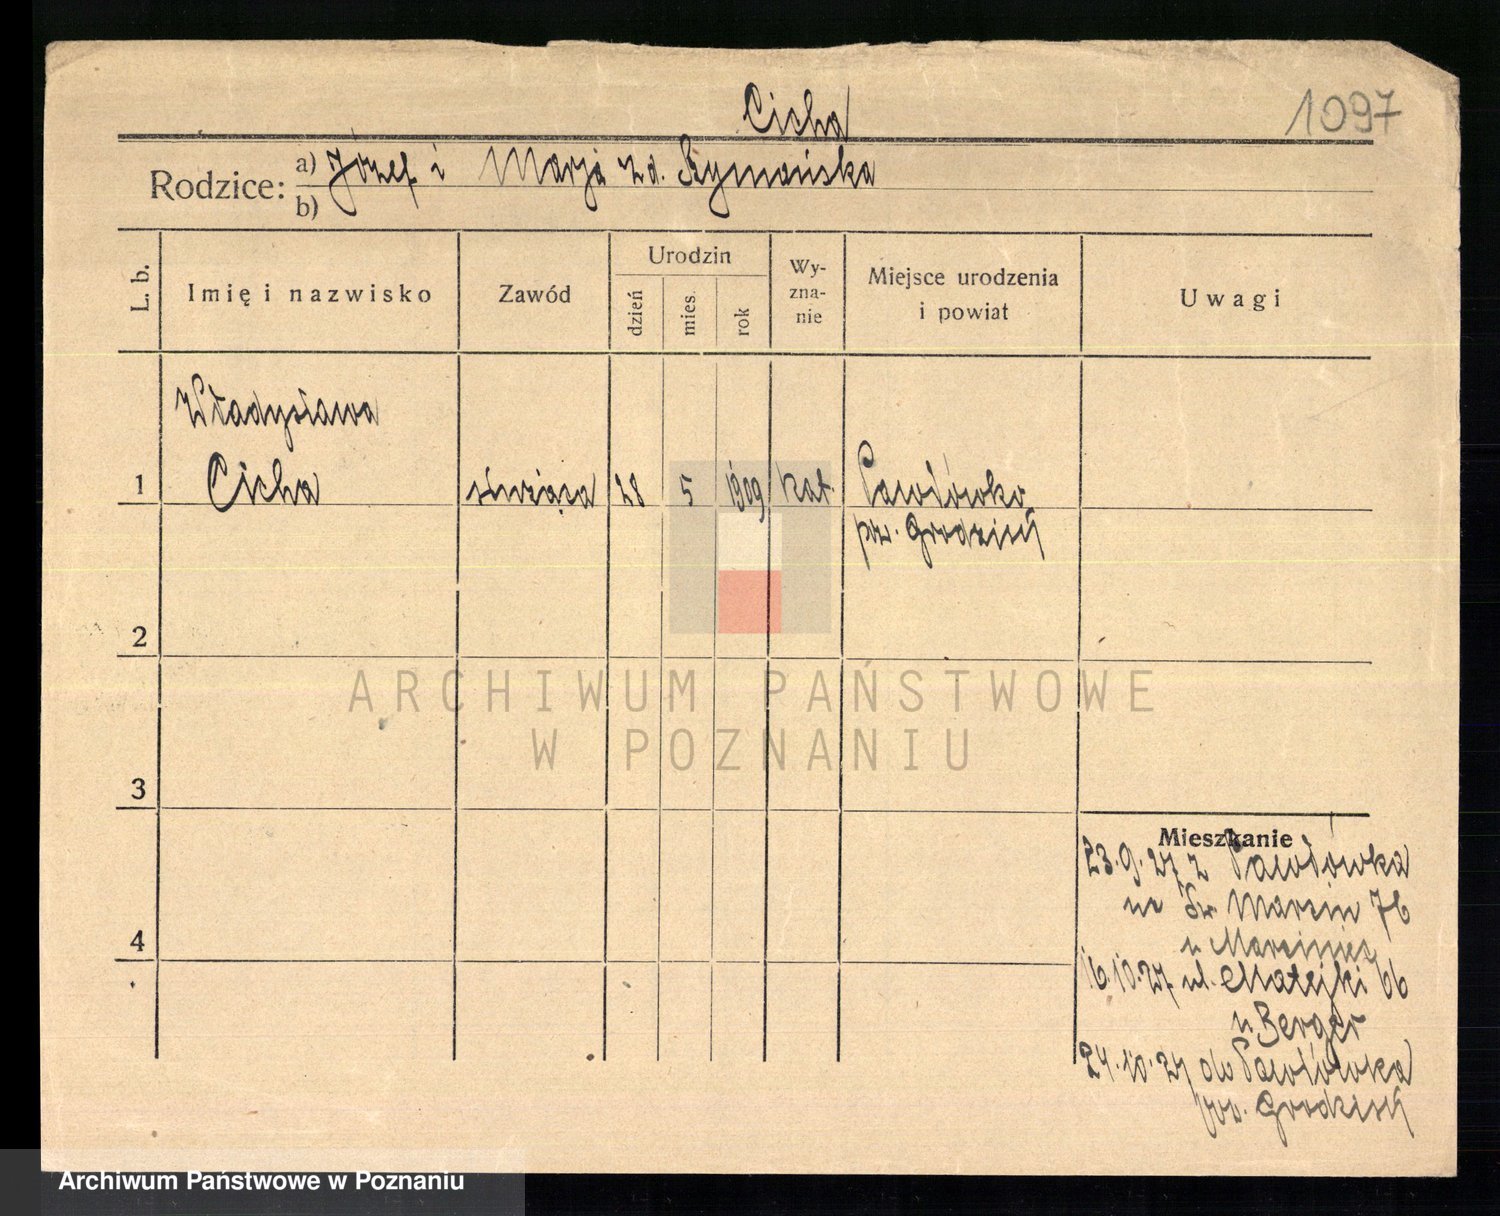 Cicha
1097
Rodzice: a) Józef i Marja zd. Szymańska
b)
L. b.
Imię i nazwisko
Zawód
Urodzin
dzień
mies.
rok
Wy-
zna-
nie
Miejsce urodzenia
i powiat
Uwagi
Władysława
1 Cicha służąca 28 5 1909 kat. Pawłówko
pw. Grodzisk
2
ARCHIWUM PAŃSTWOWE
W POZNANIU
3
Mieszkanie
23.9.27 z Pawłówka
na Św. Marcin 76
u Marciniec
4
16.10.27 ul. Matejki 66
u Berger
24.10.27 do Pawłówka
pow. Grodzisk
Archiwum Państwowe w Poznaniu